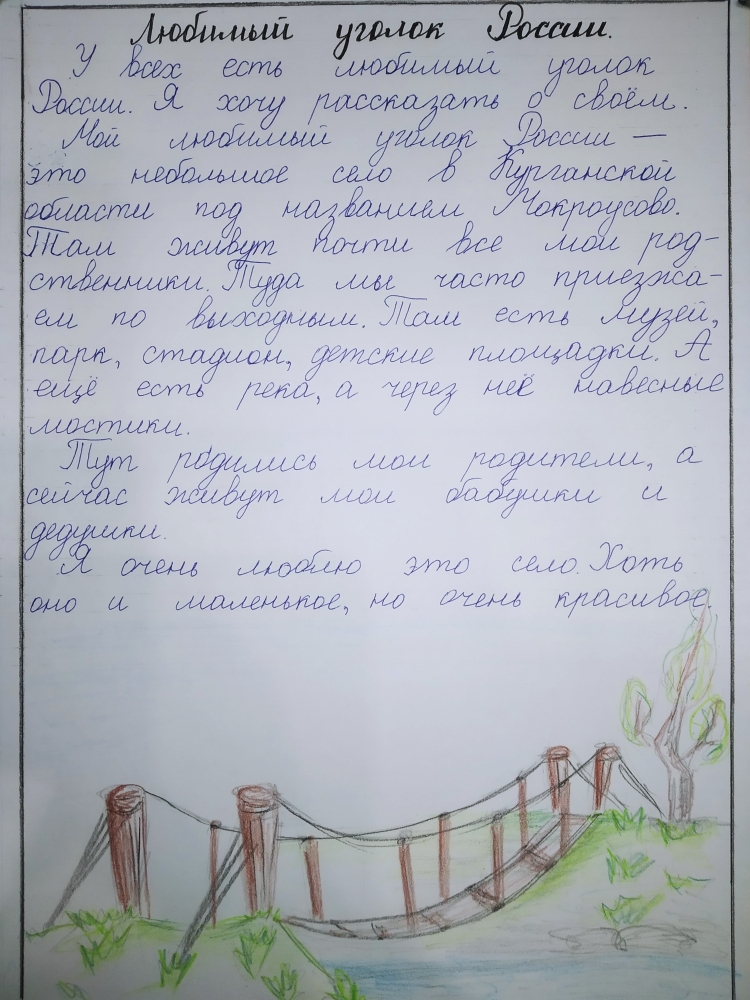 Любимый уголок России.
У всех есть любимый уголок
России. Я хочу рассказать о своём.
Мой любимый уголок России —
это небольшое село в Курганской
области под названием Мокроусово.
Там живут почти все мои род-
ственники. Туда мы часто приезжа-
ем по выходным. Там есть музей,
парк, стадион, детские площадки. А
ещё есть река, а через неё навесные
мостики.
Тут родились мои родители, а
сейчас живут мои бабушки и
дедушки.
Я очень люблю это село. Хоть
оно и маленькое, но очень красивое.